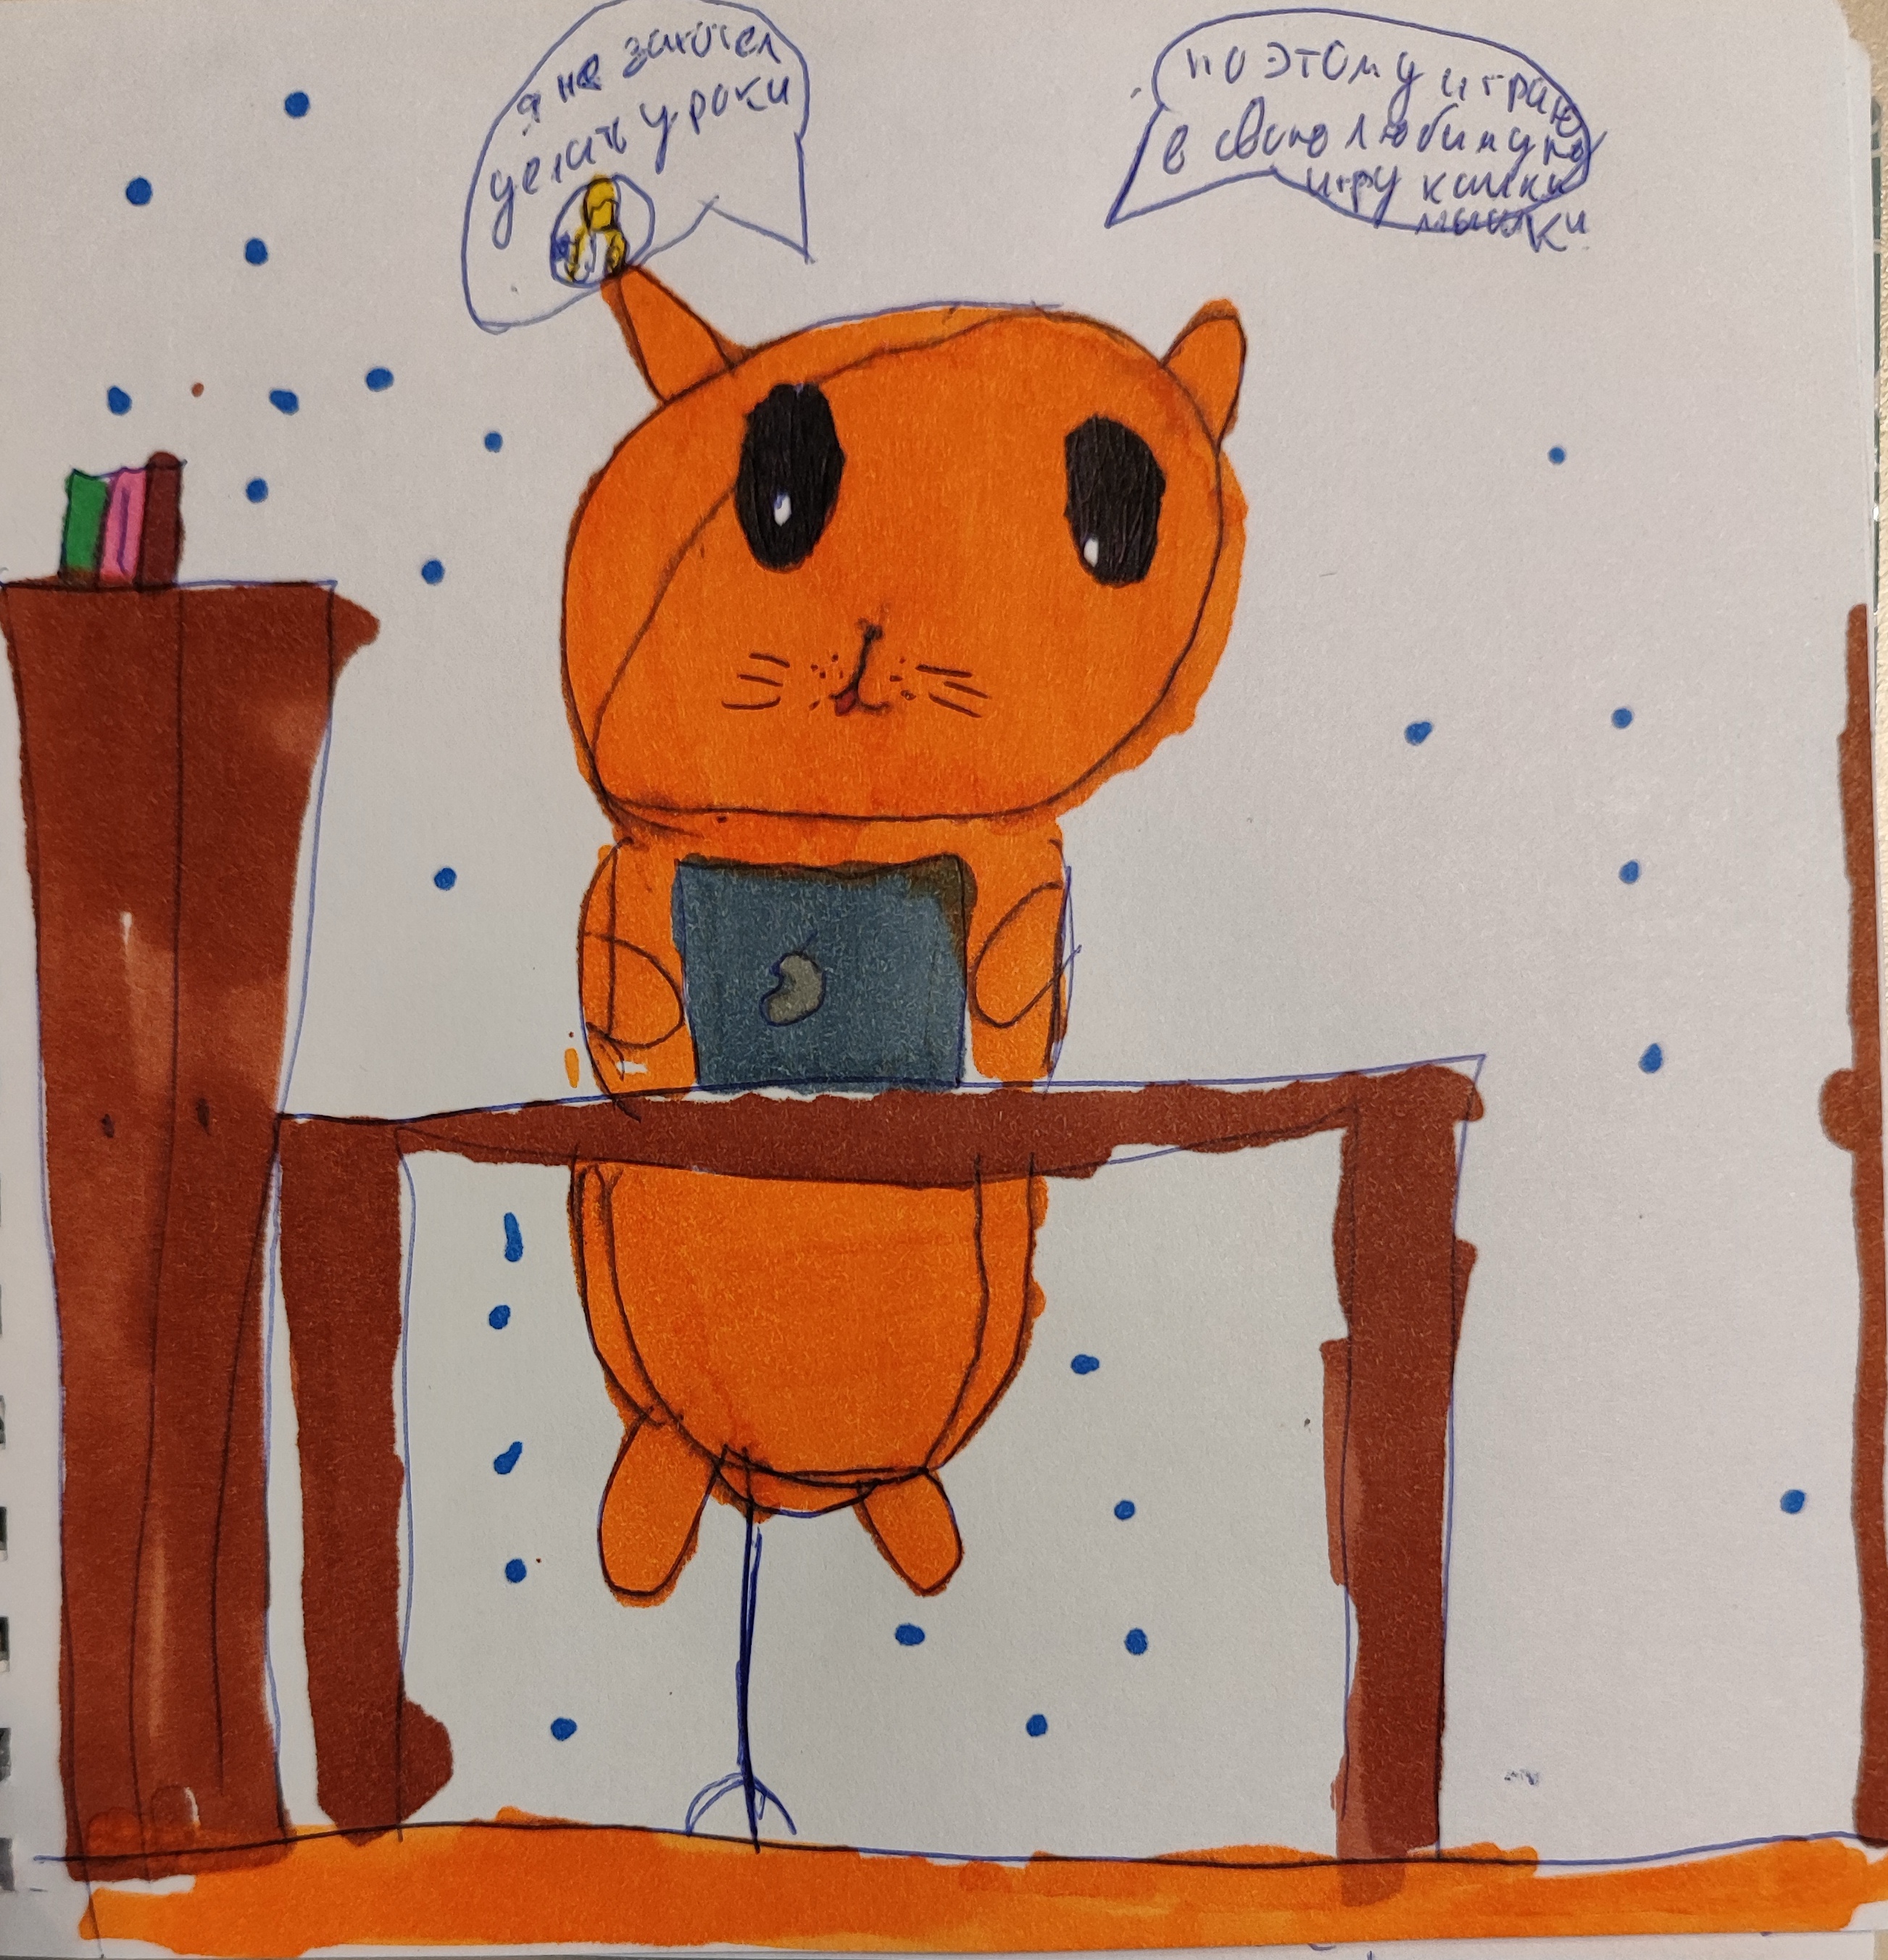 я не захотел
делать уроки
по этому играю
в свою любимую
игру кошки
мышки